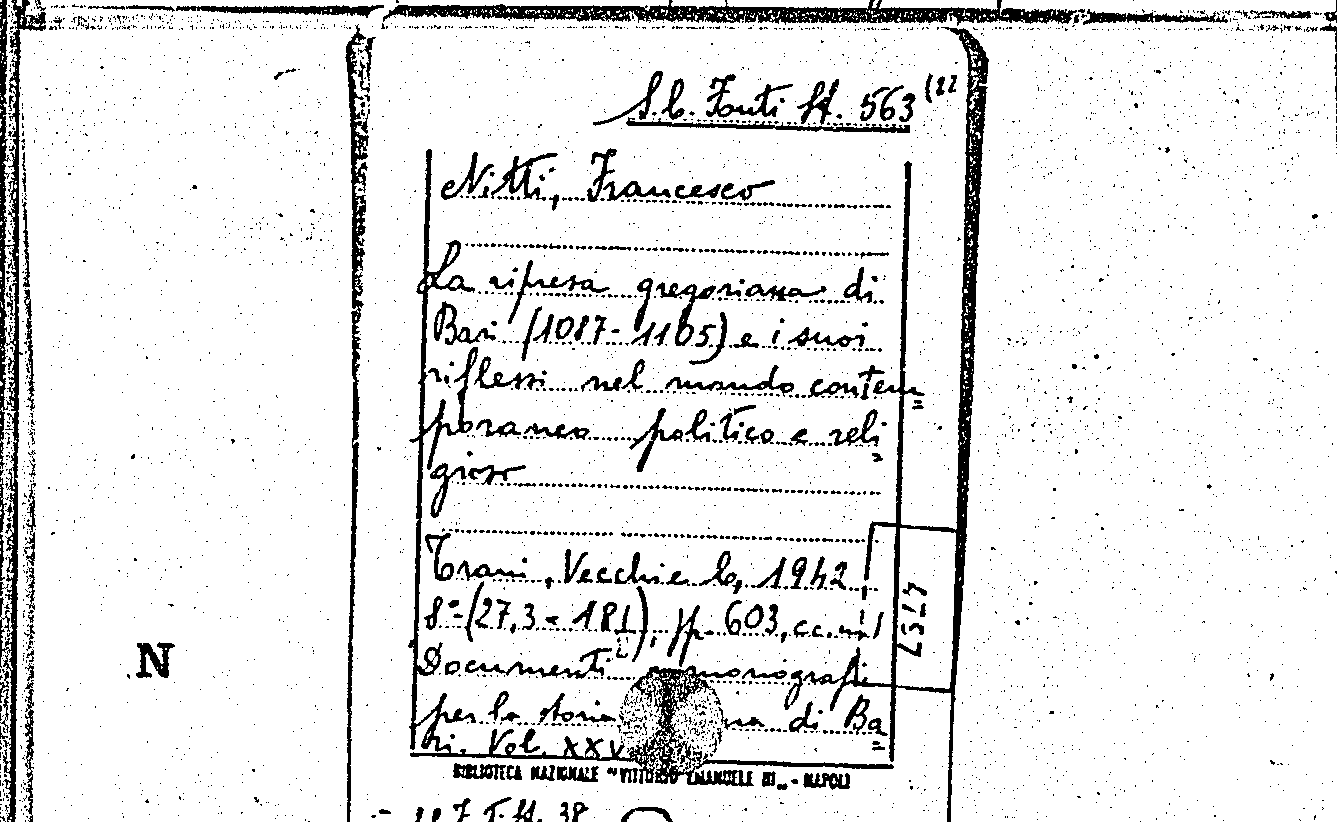 S.b. Fonti ff. 563 (22
Nitti, Francesco
La ripresa gregoriana di
Bari (1087-1105) e i suoi
riflessi nel mondo contem
poraneo politico e reli
gioso
Trani, Vecchi e C., 1942
8°-(27,3 × 18), pp. 603, cc. n. 1
4757
Documenti monografie
per la storia di Ba
ri. Vol. XXV
N
BIBLIOTECA NAZIONALE "VITTORIO EMANUELE III" - NAPOLI